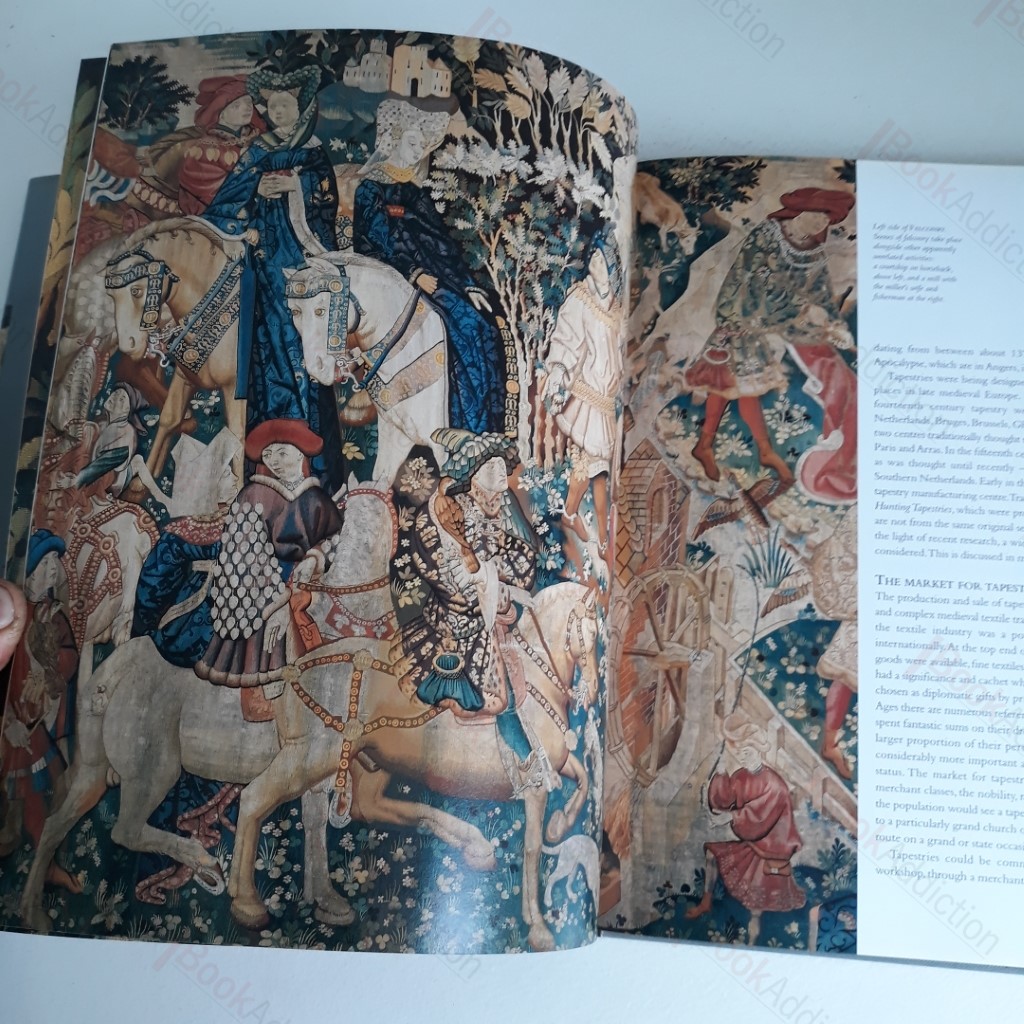 Left side of FALCONRY
Scenes of falconry take place
alongside other apparently
unrelated activities:
a courtship on horseback,
above left, and a mill with
the miller's wife and
fisherman at the right.
dating from between about 13
Apocalypse, which are in Angers,
Tapestries were being designe
places in late medieval Europe.
fourteenth century tapestry we
Netherlands, Bruges, Brussels, G
two centres traditionally thought
Paris and Arras. In the fifteenth ce
as was thought until recently –
Southern Netherlands. Early in th
tapestry manufacturing centre. Tra
Hunting Tapestries, which were pr
are not from the same original s
the light of recent research, a wi
considered. This is discussed in m
THE MARKET FOR TAPEST
The production and sale of tape
and complex medieval textile tra
the textile industry was a po
internationally. At the top end o
goods were available, fine textiles
had a significance and cachet wh
chosen as diplomatic gifts by pr
Ages there are numerous refere
spent fantastic sums on their dr
larger proportion of their per
considerably more important a
status. The market for tapestr
merchant classes, the nobility, r
the population would see a tape
to a particularly grand church o
route on a grand or state occasi
Tapestries could be comm
workshop, through a merchant
BookAddiction